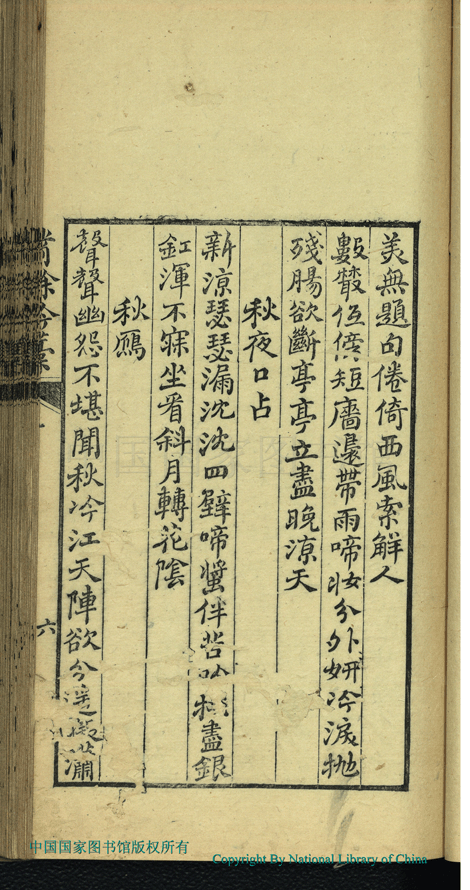 美無題句倦倚西風索解人
數聲伍倚短牆還帶雨啼妝分外妍冷淚拋
殘腸欲斷亭亭立盡晚涼天
秋夜口占
新涼瑟瑟漏沈沈四壁啼螿伴苦吟挑盡銀
釭渾不寐坐看斜月轉花陰
秋鴈
聲聲幽怨不堪聞秋冷江天陣欲分
餘吟草
六
中国国家图书馆版权所有
Copyright By National Library of China